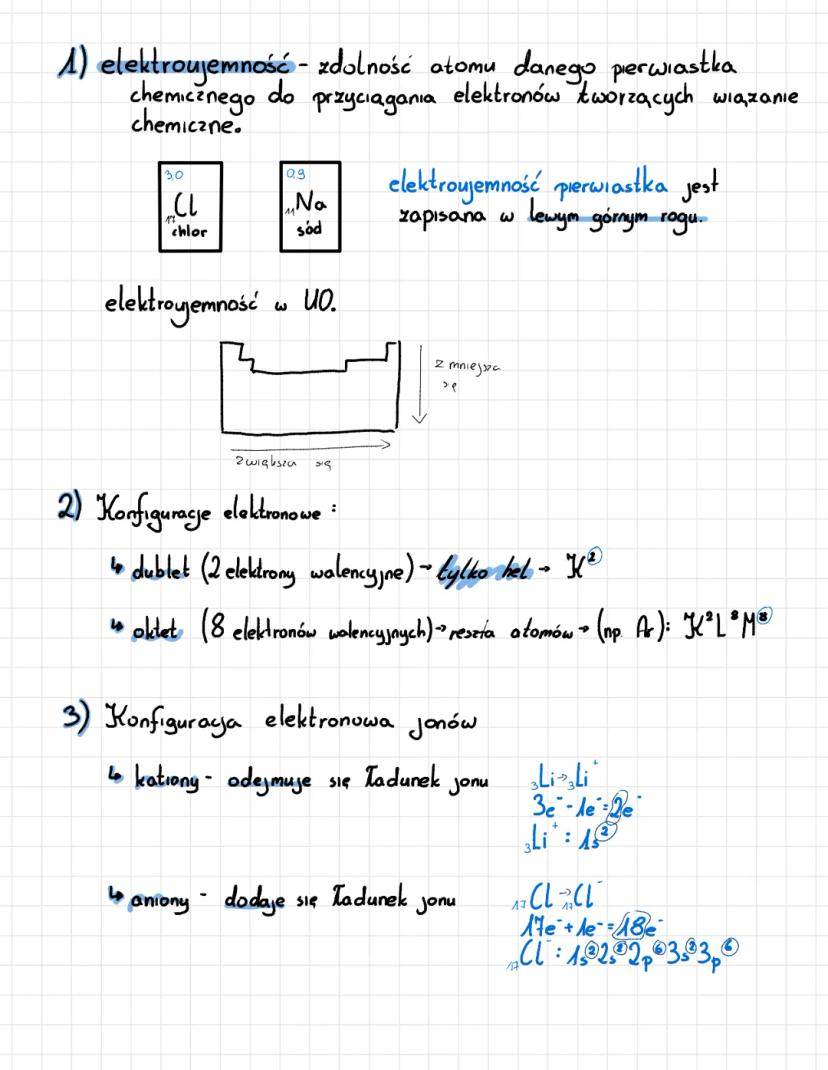 1) elektroujemność - zdolność atomu danego pierwiastka
chemicznego do przyciągania elektronów tworzących wiązanie
chemiczne.
3.0
17Cl
chlor
0.9
11Na
sód
elektroujemność pierwiastka jest
zapisana w lewym górnym rogu.
elektroujemność w UO.
zmniejsza
się
zwiększa się
2) Konfiguracje elektronowe:
↳ dublet (2 elektrony walencyjne) → tylko hel → K²
↳ oktet (8 elektronów walencyjnych) → reszta atomów → (np. Ar): K²L⁸M⁸
3) Konfiguracja elektronowa jonów
↳ kationy - odejmuje się ładunek jonu
₃Li → ₃Li⁺
3e⁻ - 1e⁻ = 2e⁻
₃Li⁺: 1s²
↳ aniony - dodaje się ładunek jonu
₁₇Cl → ₁₇Cl⁻
17e⁻ + 1e⁻ = 18e⁻
₁₇Cl⁻: 1s²2s²2p⁶3s²3p⁶